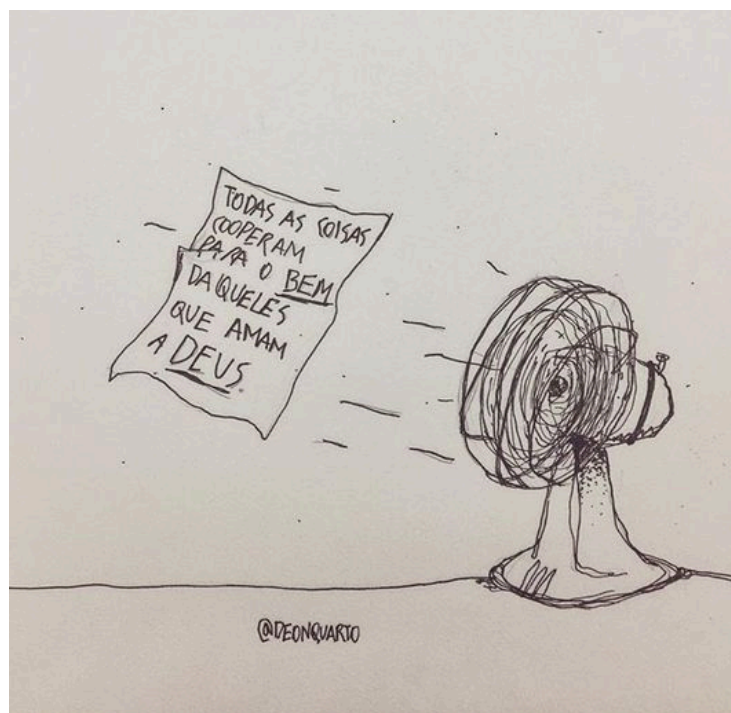 TODAS AS COISAS
COOPERAM
PARA O BEM
DAQUELES
QUE AMAM
A DEUS.
@DEONQUARTO